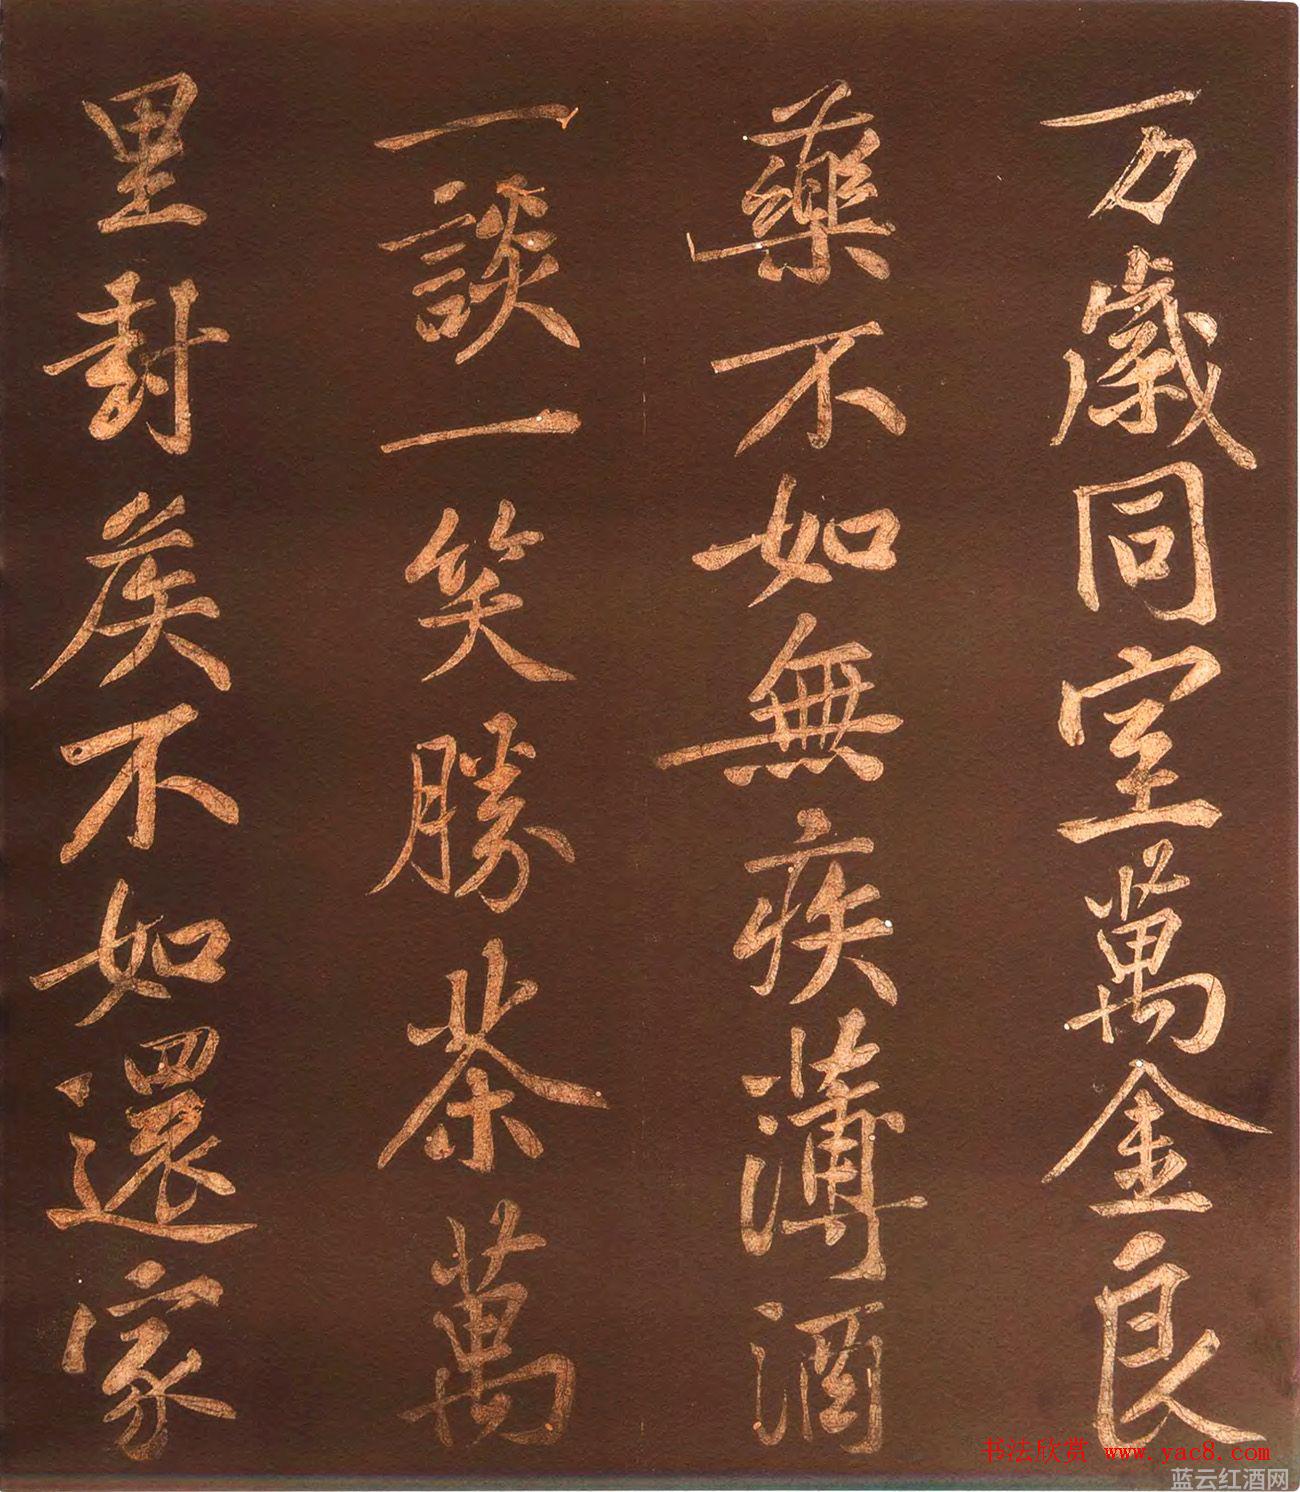 万歲同室萬金良
藥不如無疾薄酒
一談一笑勝茶萬
里封矦不如還家
书法欣赏 www.yac8.com
蓝云红酒网